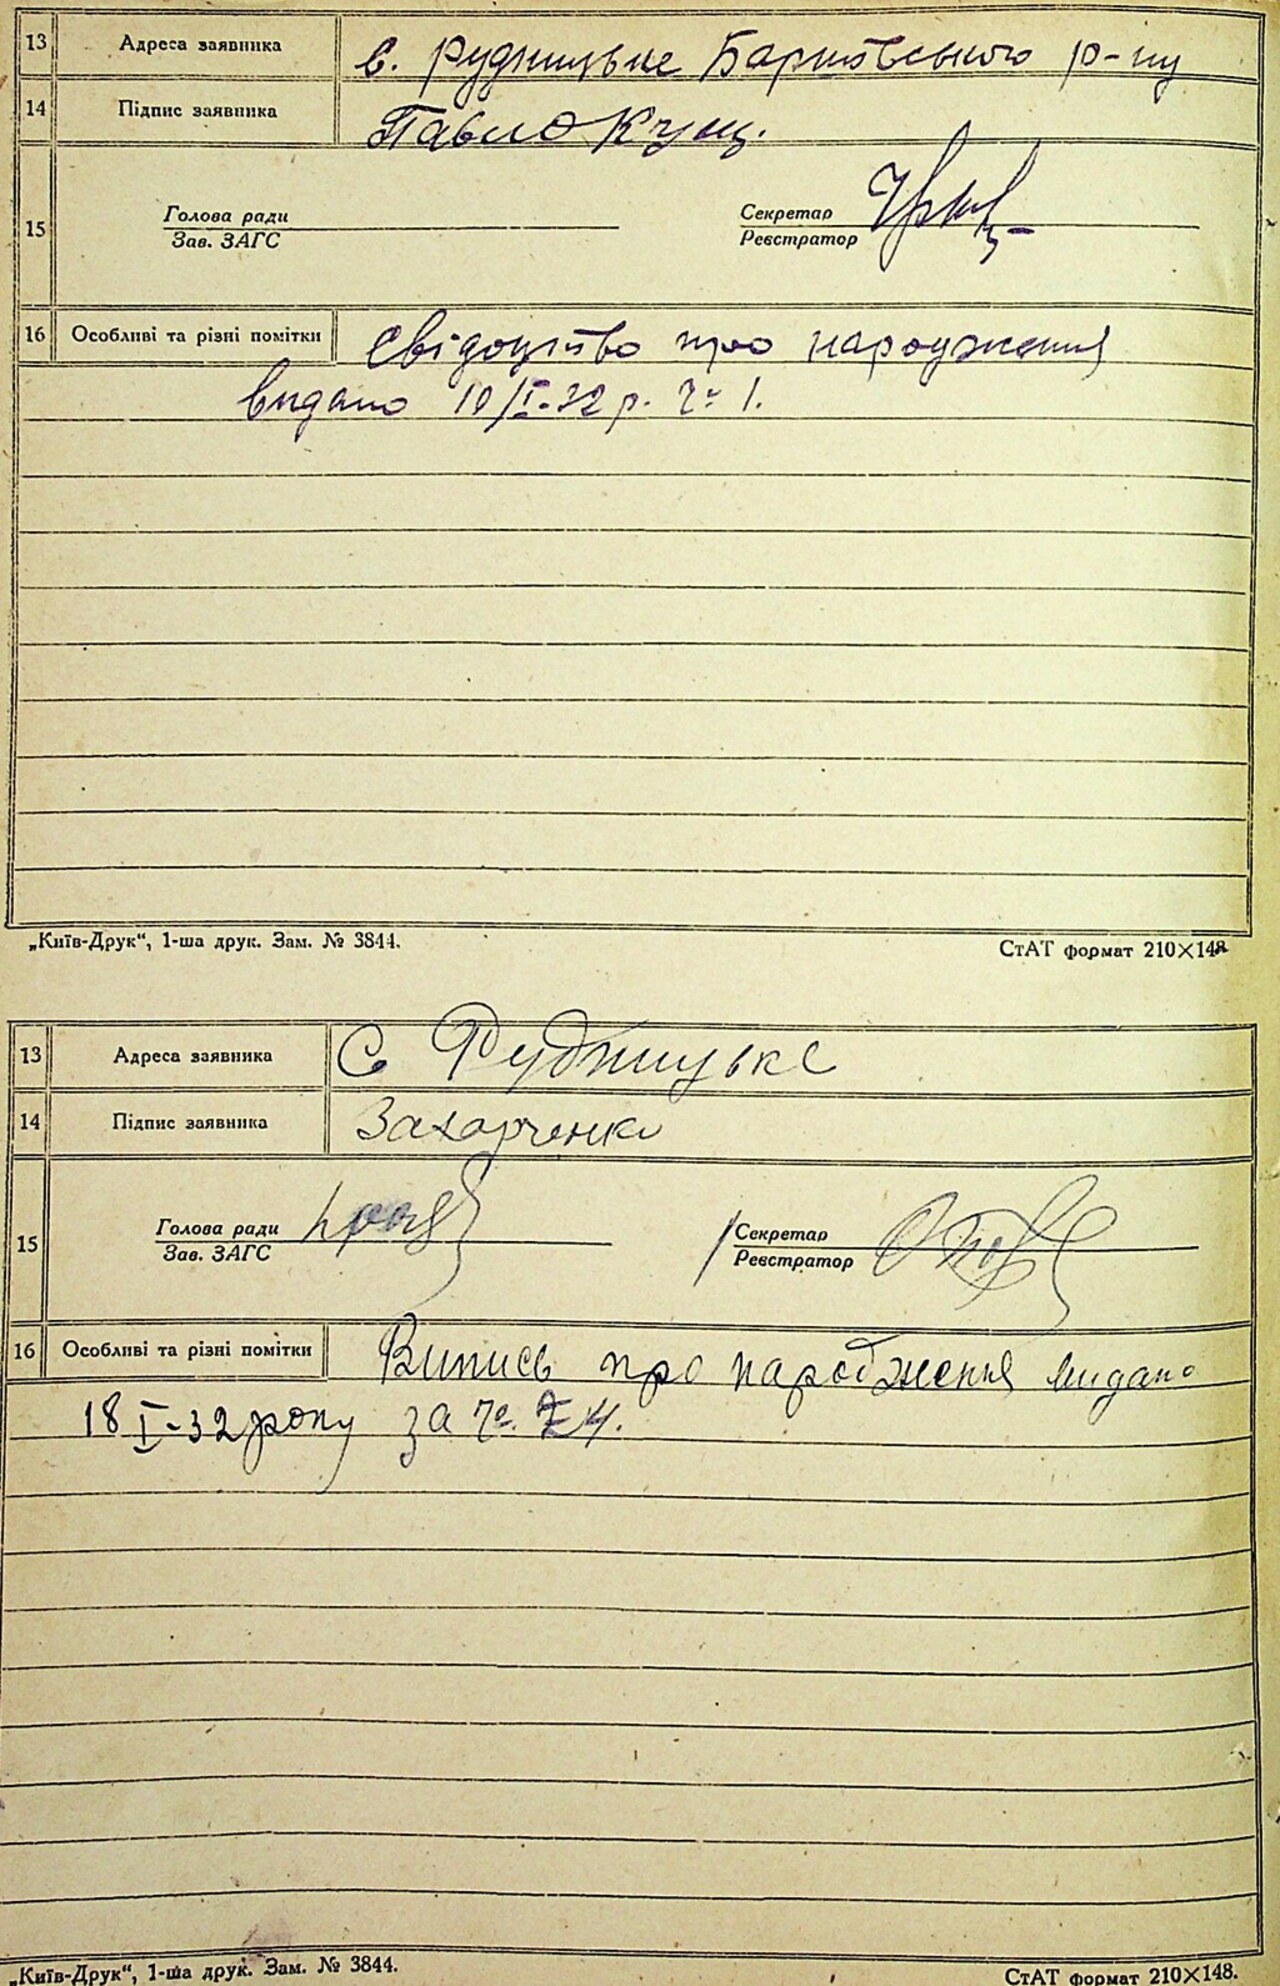 13 Адреса заявника с. Рудницьке Баришівського р-ну
14 Підпис заявника Павло Кущ.
15 Голова ради Секретар
Зав. ЗАГС Реєстратор
16 Особливі та різні помітки Свідоцтво про народження
видано 10/I-32 р. Ч° 1.
„Київ-Друк“, 1-ша друк. Зам. № 3844. СтАТ формат 210×148
13 Адреса заявника С Рудницьке
14 Підпис заявника Захарченко
15 Голова ради Секретар
Зав. ЗАГС Реєстратор
16 Особливі та різні помітки Випись про народження видано
18 I-32 року за Ч°. 4.
„Київ-Друк“, 1-ша друк. Зам. № 3844. СтАТ формат 210×148.